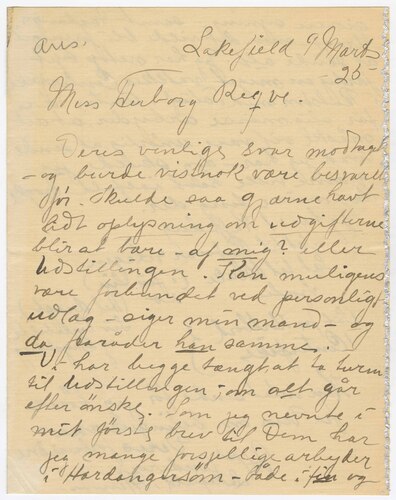 ans. Lakefield 9 Marts
25
Miss Herborg Reqve.
Deres venlige svar modtaget
- og burde vistnok være besvaret
før. Skulde saa gjærne havt
lidt oplysning om udgifterne
blir at bære - af mig? eller
Udstillingen. Kan muligens
være forbundet ved personligt
udlag - siger min mand - og
da fraråder han samme.
Vi har begge tængt at ta turen
til Udstillingen; om alt går
efter ønske. Som jeg nevnte i
mit første brev til Dem har
jeg mange forsjellige arbeider
i "Hardangersøm - både i og